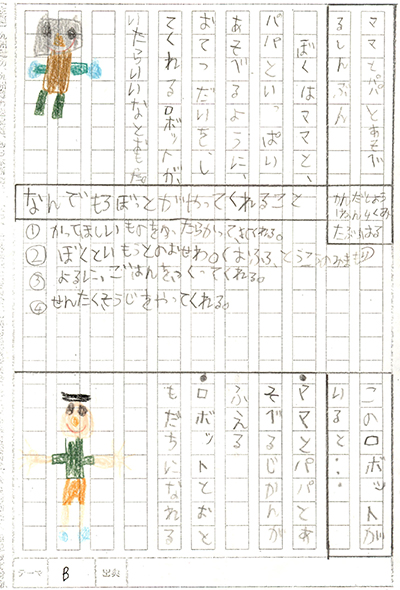 ママとパパとあそべ
るしんぶん
ぼくはママと、
パパといっぱい
あそべるように、
おてつだいを、し
てくれるロボットが、
いたらいいなとおもた。
なんでもろぼっとがやってくれること
たぶんはる
①かってほしいものをゆったらかってきてくれる。
②ぼくといもうとのおせわ。(おふろ、
③よるに、ごはんをつくってくれる。
④せんたくそうじをやってくれる。
このロボットが
いると・・・
●ママとパパとあ
そべるじかんが
ふえる
●ロボットとおと
もだちになれる
テーマ B 出典